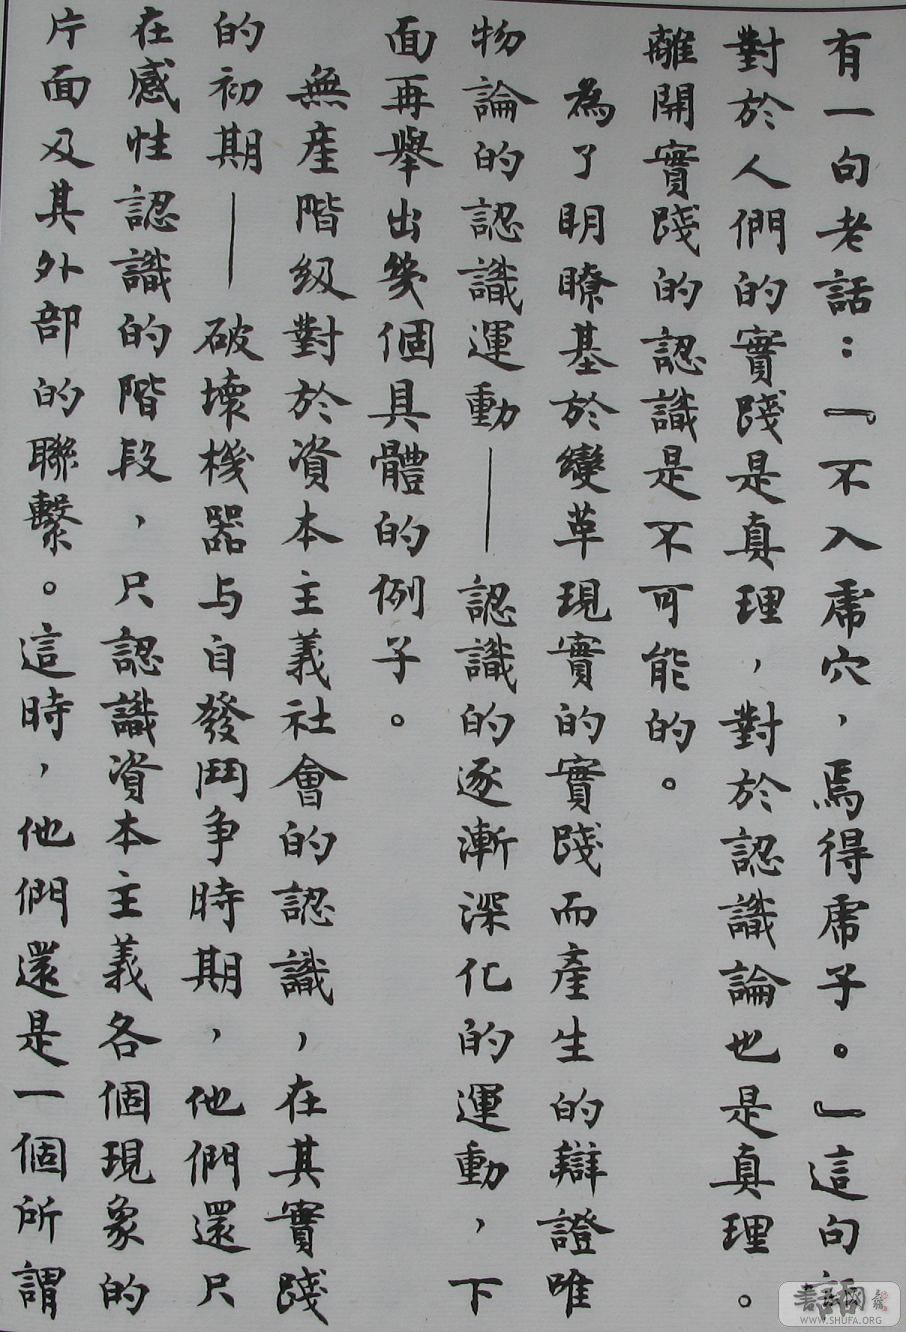 有一句老話：『不入虎穴，焉得虎子。』這句話
對於人們的實踐是真理，對於認識論也是真理。
離開實踐的認識是不可能的。
為了明瞭基於變革現實的實踐而產生的辯證唯
物論的認識運動——認識的逐漸深化的運動，下
面再舉出幾個具體的例子。
無產階級對於資本主義社會的認識，在其實踐
的初期——破壞機器与自發鬥争時期，他們還只
在感性認識的階段，只認識資本主義各個現象的
片面及其外部的聯繫。這時，他們還是一個所謂
書法网
WWW.SHUFA.ORG